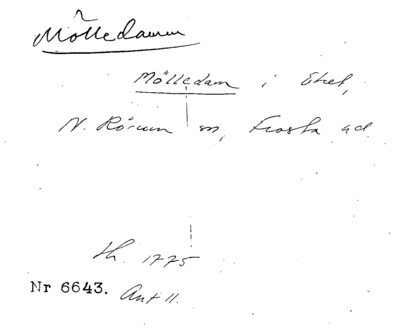 Mölledamm
Mölledam i Ekef,
N. Rörum sn, Frosta hd
th. 1775
Nr 6643. Ant 11.